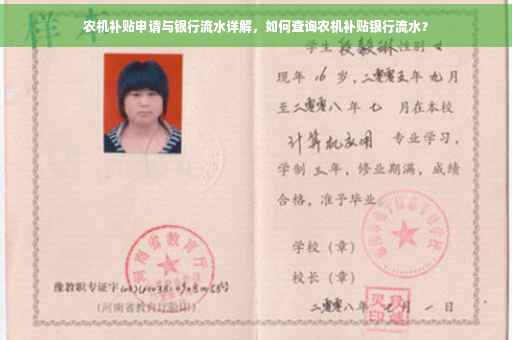 农机补贴申请与银行流水详解，如何查询农机补贴银行流水？
样本
学生 段毅琳 性别 女
现年 16 岁，二零零五年 九月
至二零零八年 七 月在本校
计算机应用 专业学习，
学制 三年，修业期满，成绩
合格，准予毕业。
学校（章）
校长（章）
二零零八年 月 一 日
河南省教育厅
豫教职专证字
（河南省教育厅验印）